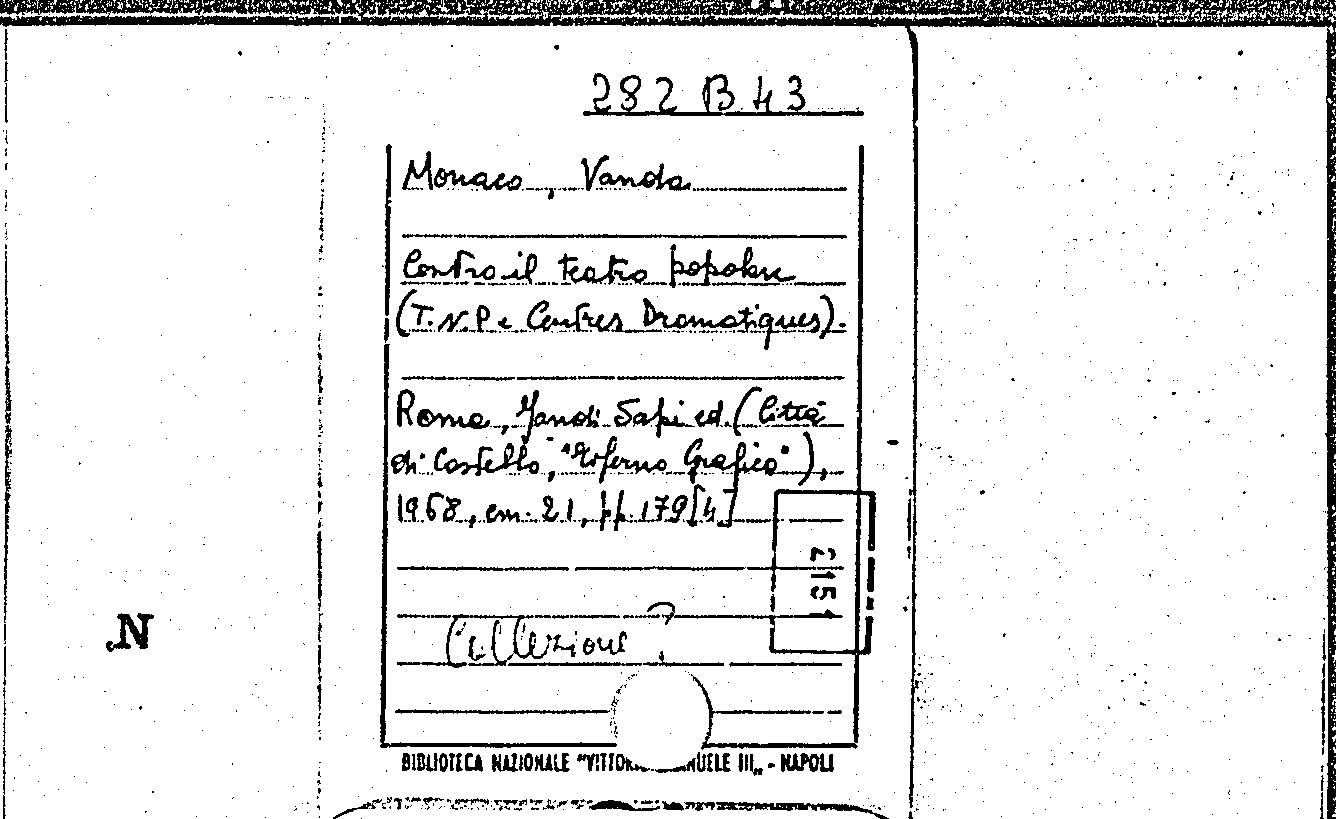 282 B 43
Monaco, Vanda
Contro il teatro popolare
(T.N.P. e Centres Dramatiques).
Roma, Yandi Sapi ed. (Città
di Castello, "Grafico"),
1968, cm. 21, pp. 179 [4]
Collezione ?
2151
N.
BIBLIOTECA NAZIONALE "VITTORIO III„ - NAPOLI